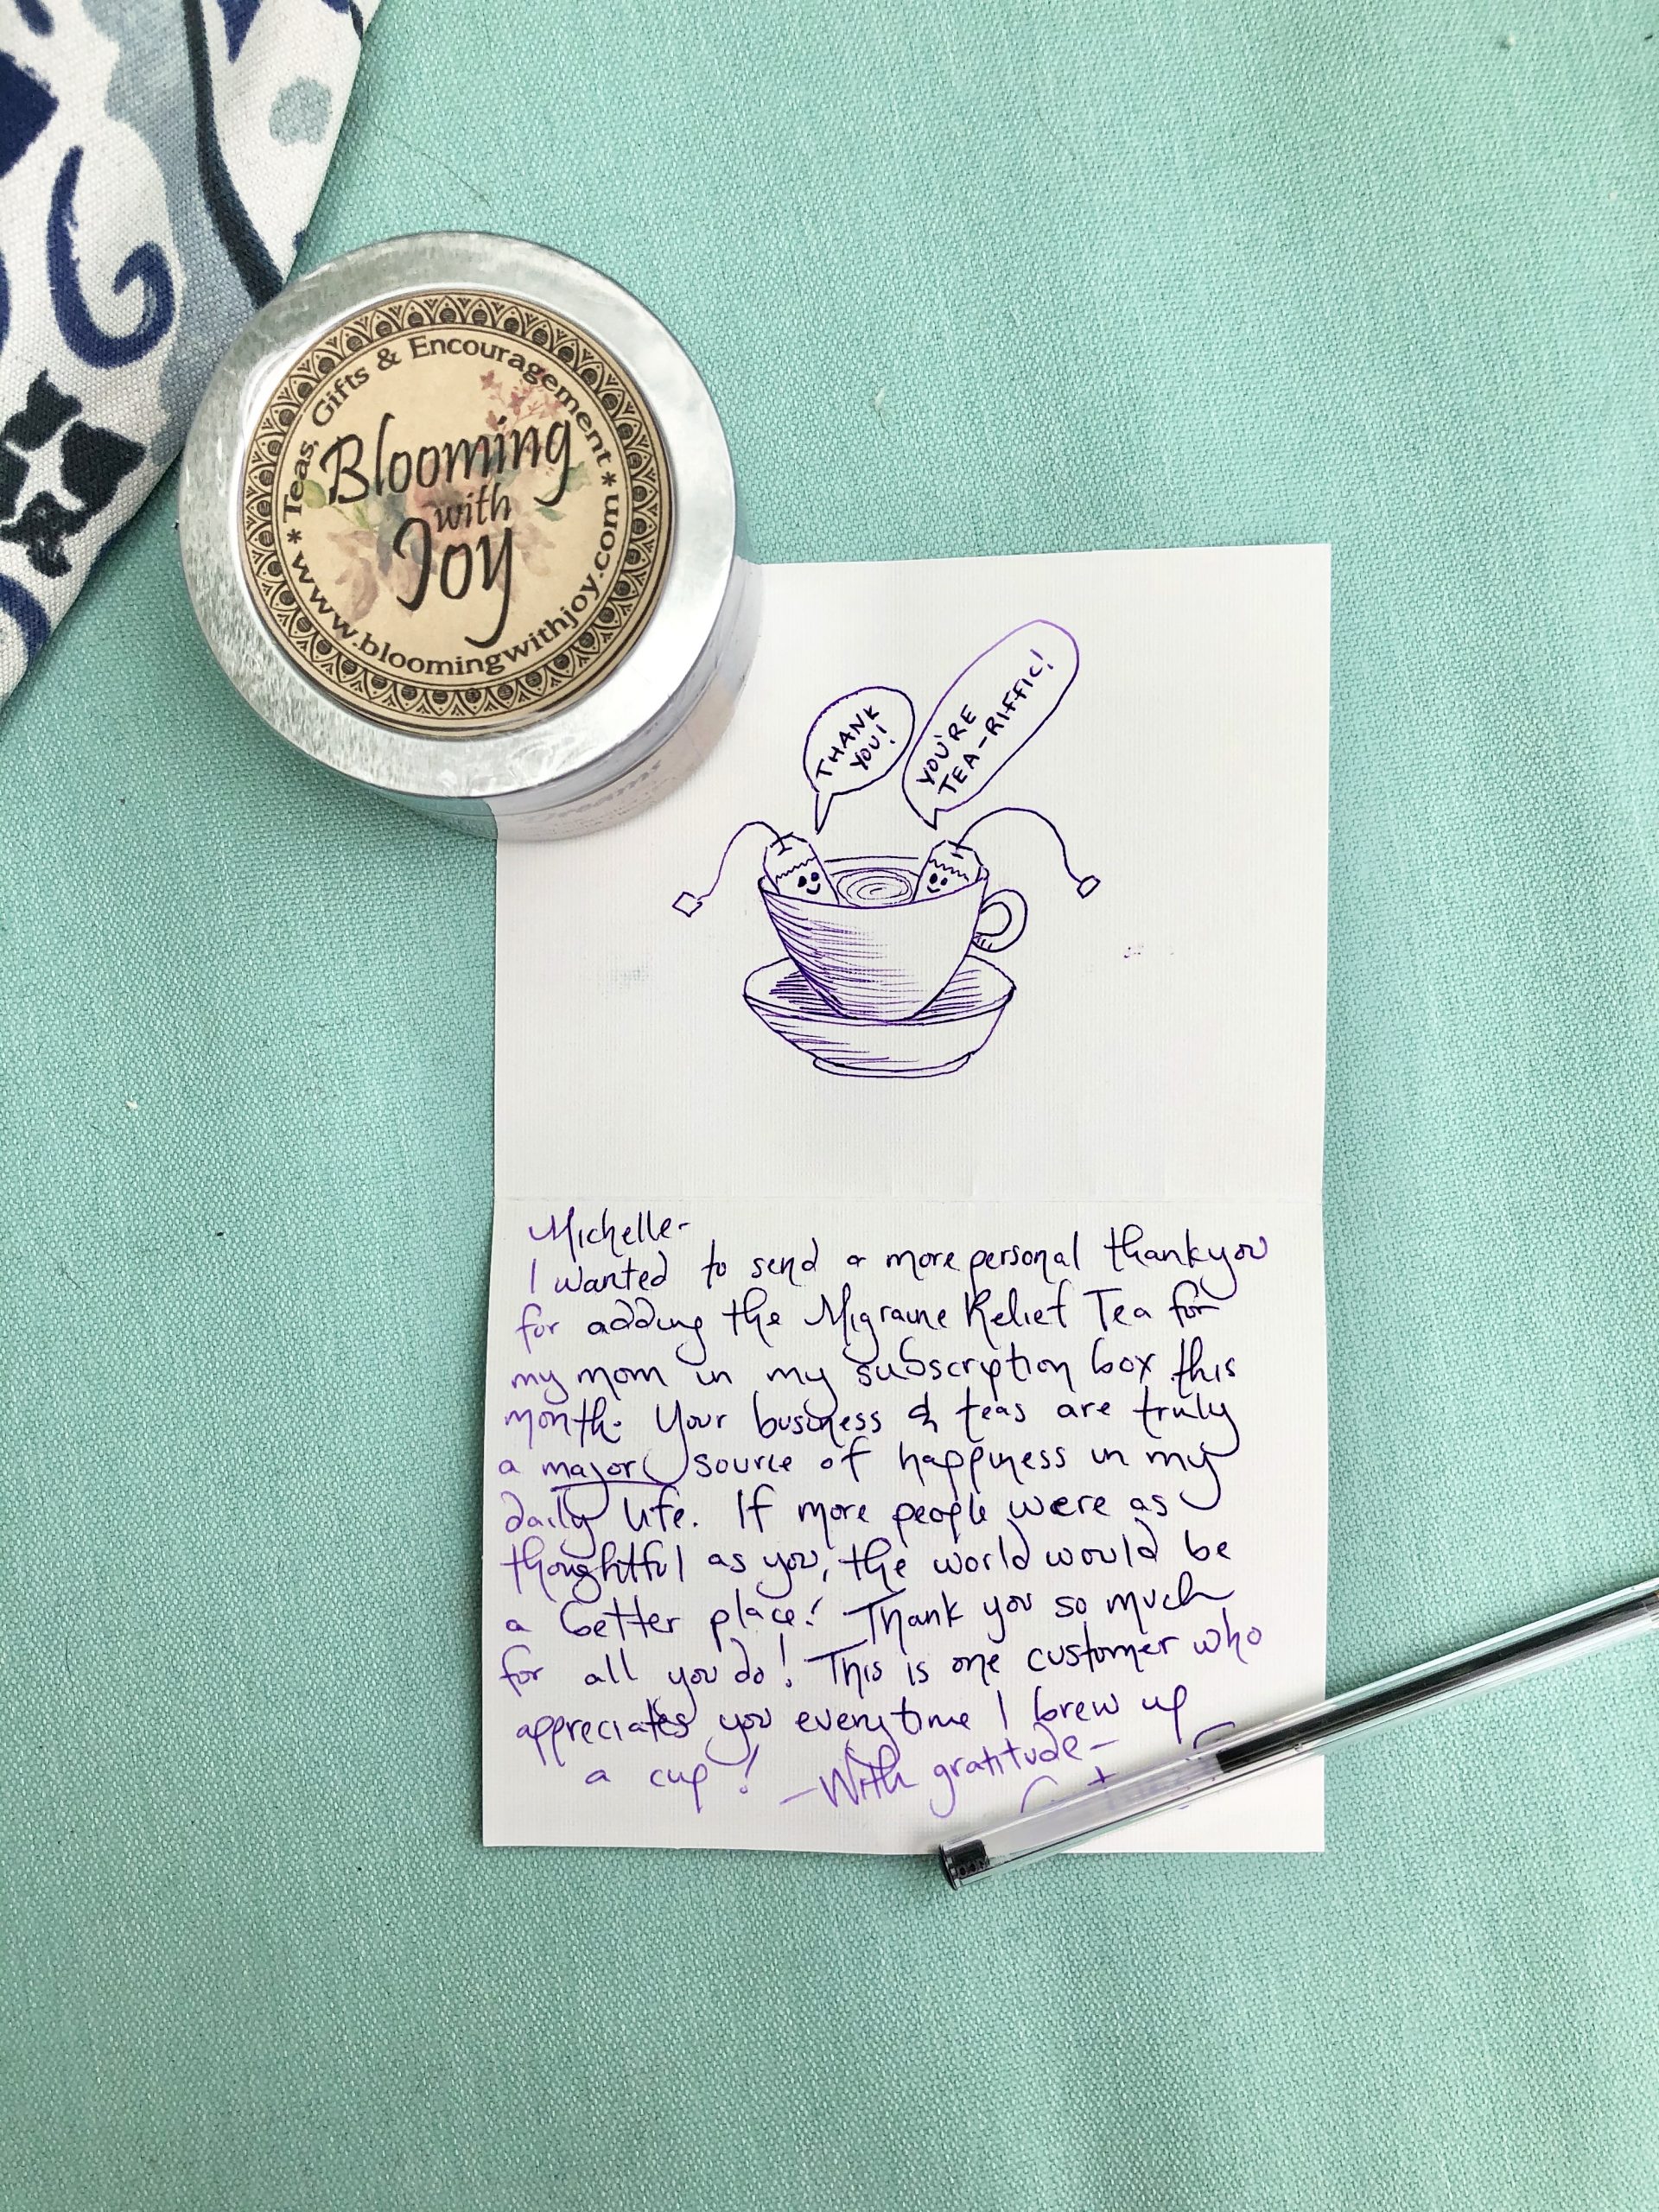 * Teas, Gifts & Encouragement *
Blooming
with
Joy
www.bloomingwithjoy.com
THANK
YOU!
YOU'RE
TEA-RIFFIC!
Michelle-
I wanted to send a more personal thank you
for adding the Migraine Relief Tea for
my mom in my subscription box this
month. Your business & teas are truly
a major source of happiness in my
daily life. If more people were as
thoughtful as you, the world would be
a better place! Thank you so much
for all you do! This is one customer who
appreciates you everytime I brew up
a cup! -With gratitude-